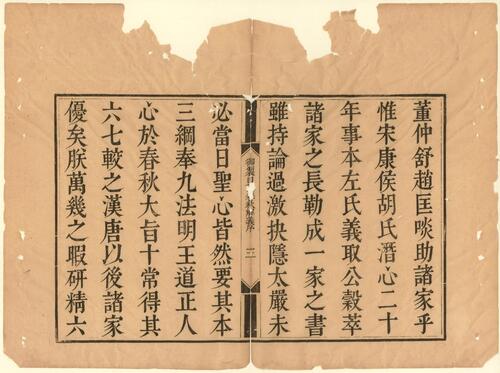 董仲舒趙匡啖助諸家乎
惟宋康侯胡氏潛心二十
年事本左氏義取公穀萃
諸家之長勒成一家之書
雖持論過激抉隱太嚴未
御製日 解義序
必當日聖心皆然要其本
三綱奉九法明王道正人
心於春秋大旨十常得其
六七較之漢唐以後諸家
優矣朕萬幾之暇研精六